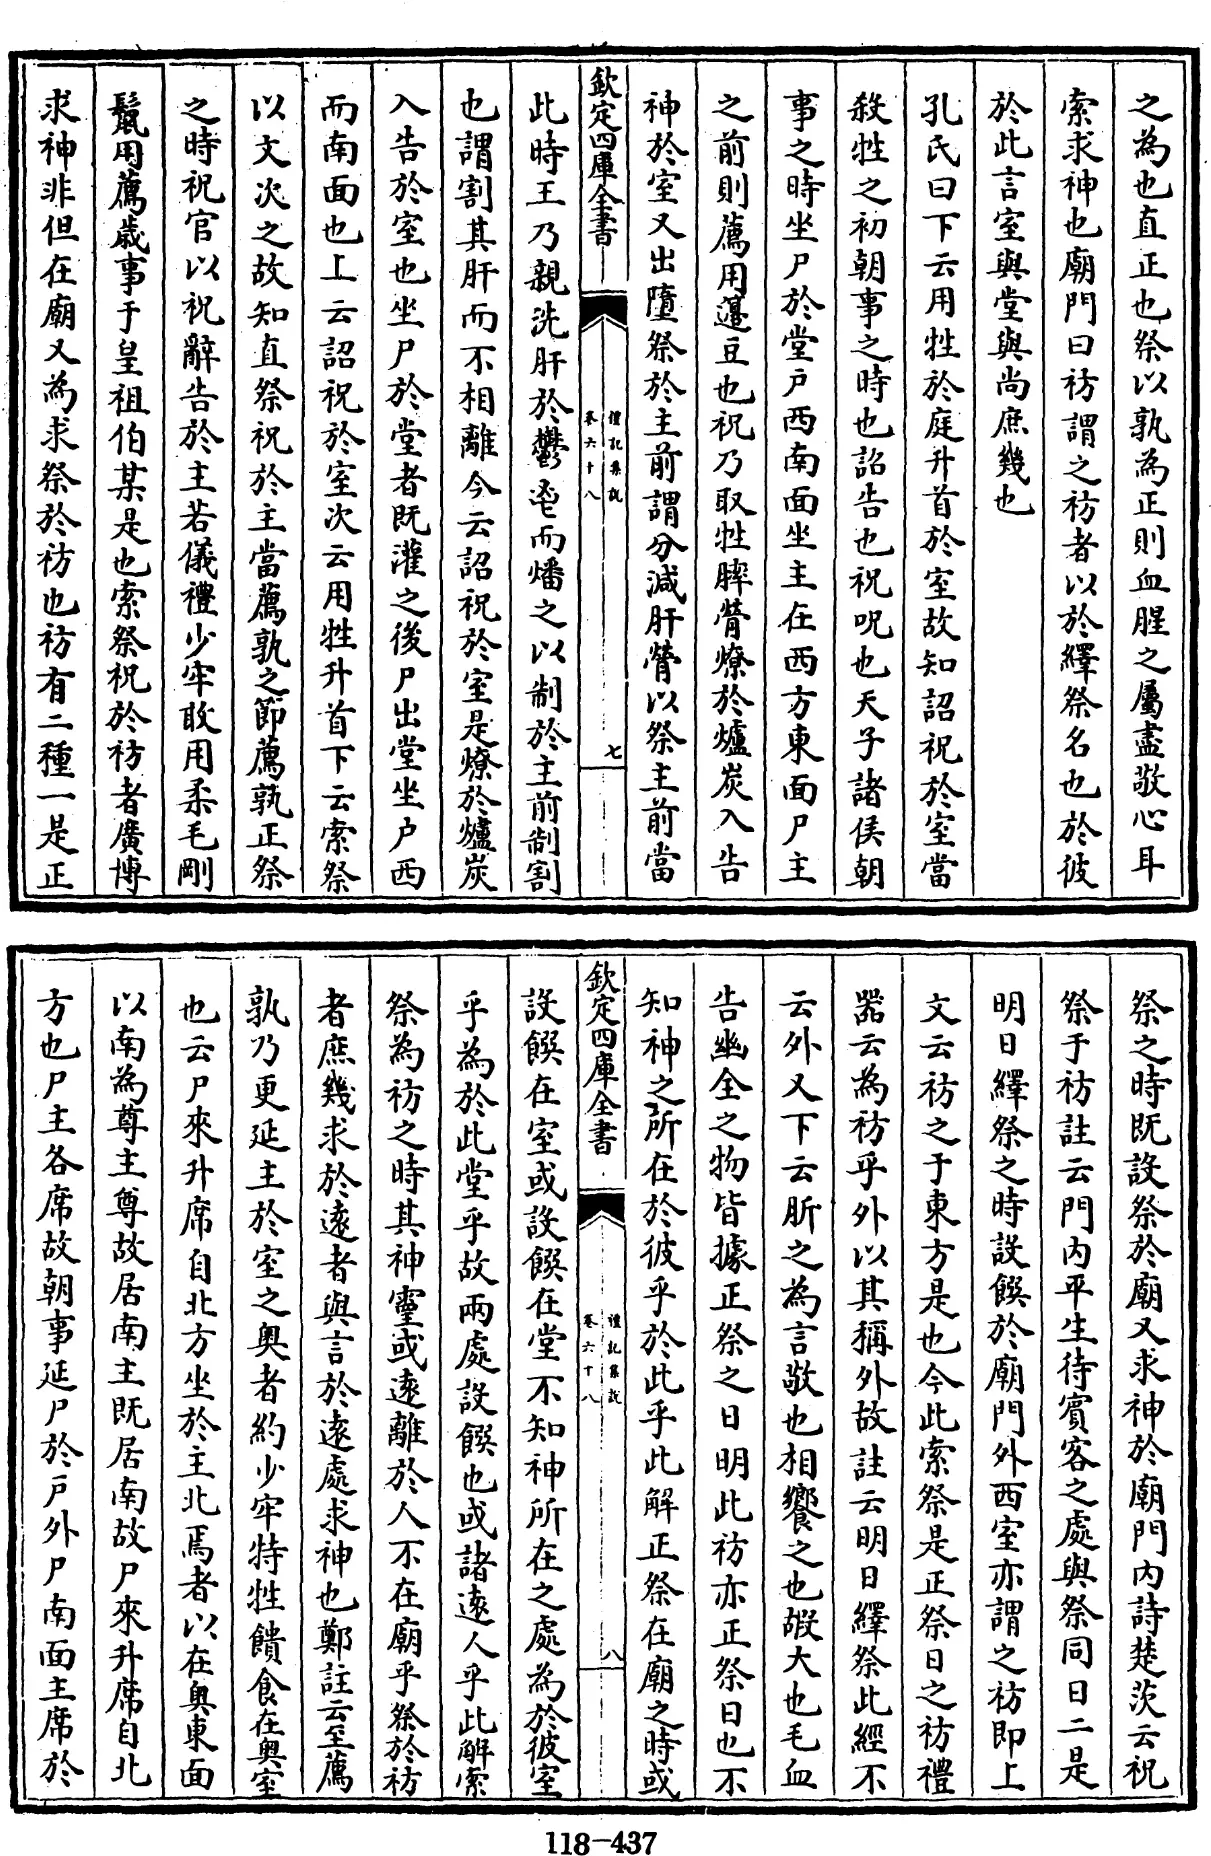 之為也直正也祭以孰為正則血腥之屬盡敬心耳
索求神也廟門曰祊謂之祊者以於繹祭名也於彼
於此言室與堂與尚庶幾也
孔氏曰下云用牲於庭升首於室故知詔祝於室當
殺牲之初朝事之時也詔告也祝呪也天子諸侯朝
事之時坐尸於堂戶西南面坐主在西方東面尸主
之前則薦用籩豆也祝乃取牲膟膋燎於爐炭入告
神於室又出墮祭於主前謂分減肝膋以祭主前當
欽定四庫全書
禮記集說
卷六十八
七
此時王乃親洗肝於鬱鬯而燔之以制於主前制割
也謂割其肝而不相離今云詔祝於室是燎於爐炭
入告於室也坐尸於堂者既灌之後尸出堂坐戶西
而南面也上云詔祝於室次云用牲升首下云索祭
以文次之故知直祭祝於主當薦孰之節薦孰正祭
之時祝官以祝辭告於主若儀禮少牢敢用柔毛剛
鬛用薦歲事于皇祖伯某是也索祭祝於祊者廣博
求神非但在廟又為求祭於祊也祊有二種一是正
祭之時既設祭於廟又求神於廟門內詩楚茨云祝
祭于祊註云門內平生待賓客之處與祭同日二是
明日繹祭之時設饌於廟門外西室亦謂之祊即上
文云祊之于東方是也今此索祭是正祭日之祊禮
器云為祊乎外以其稱外故註云明日繹祭此經不
云外又下云肵之為言敬也相饗之也嘏大也毛血
告幽全之物皆據正祭之日明此祊亦正祭日也不
知神之所在於彼乎於此乎此解正祭在廟之時或
欽定四庫全書
禮記集說
卷六十八
八
設饌在室或設饌在堂不知神所在之處為於彼室
乎為於此堂乎故兩處設饌也或諸遠人乎此解索
祭為祊之時其神靈或遠離於人不在廟乎祭於祊
者庶幾求於遠者與言於遠處求神也鄭註云至薦
孰乃更延主於室之奧者約少牢特牲饋食在奧室
也云尸來升席自北方坐於主北焉者以在奧東面
以南為尊主尊故居南主既居南故尸來升席自北
方也尸主各席故朝事延尸於戶外尸南面主席於
118-437